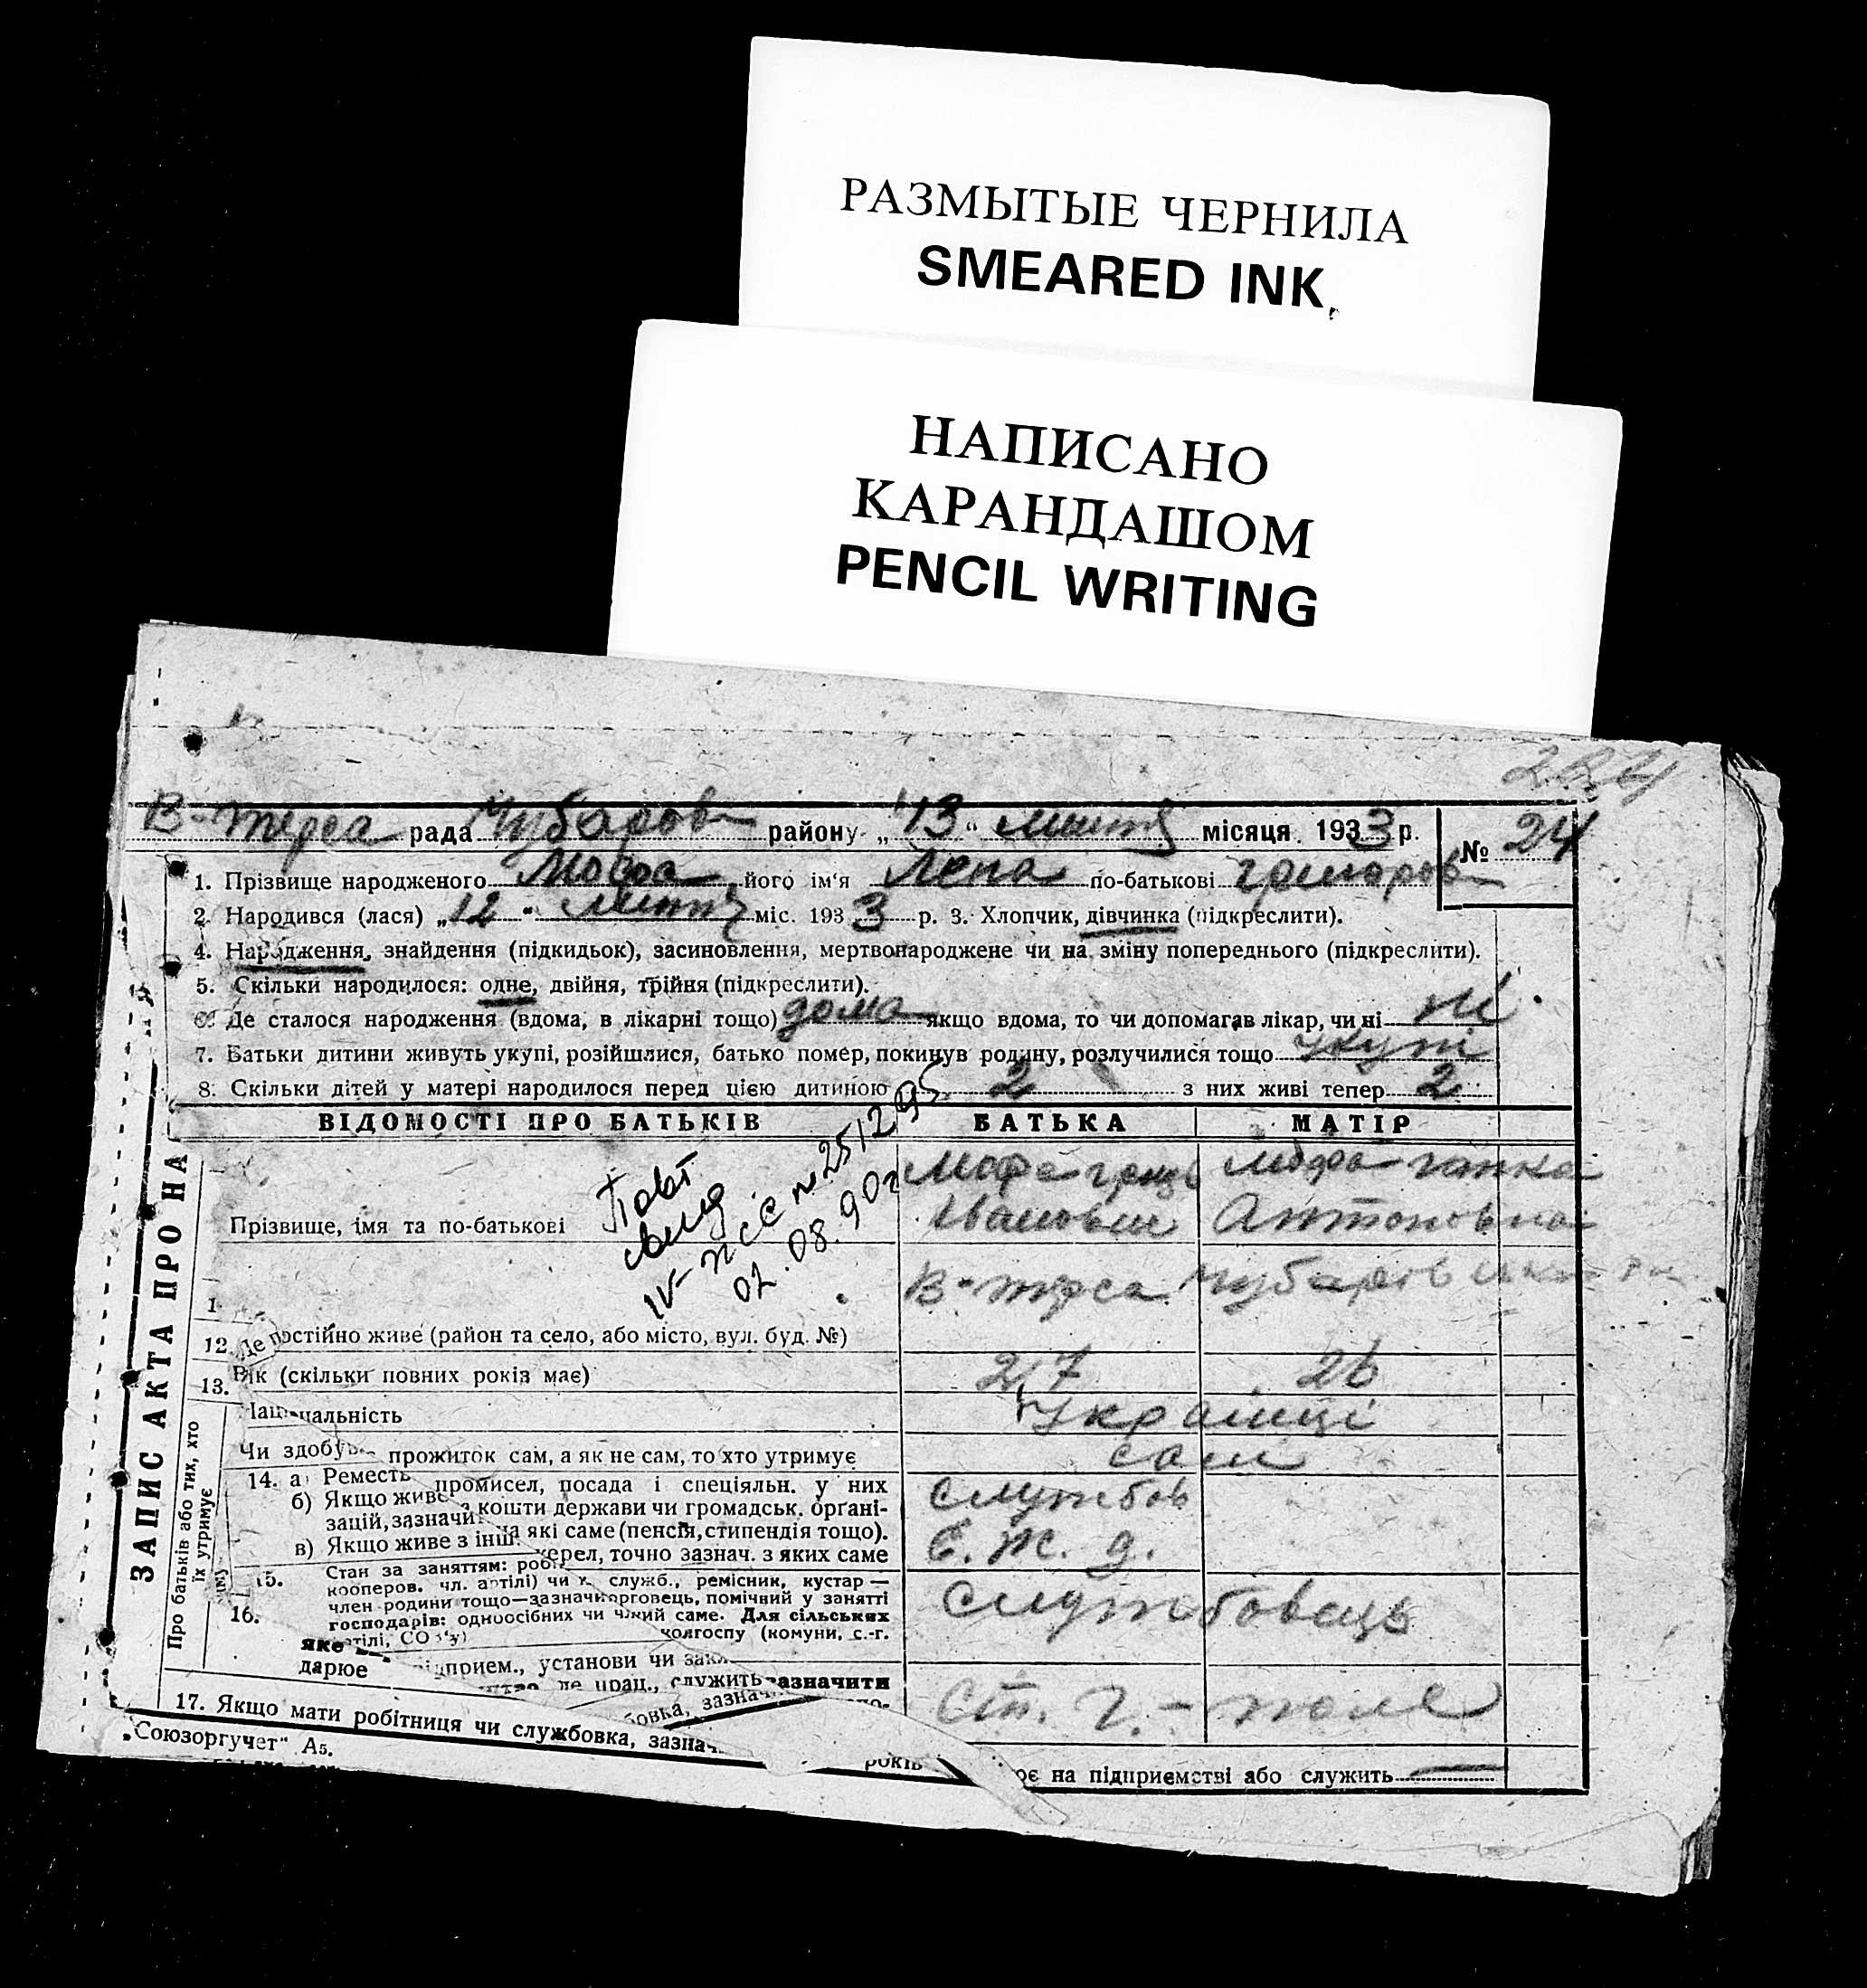 РАЗМЫТЫЕ ЧЕРНИЛА
SMEARED INK
НАПИСАНО
КАРАНДАШОМ
PENCIL WRITING
В-терса рада Чубаров району „13“ липня місяця 1933 р.
№ 24
1. Прізвище народженого Мофа його ім‘я Лена по-батькові
2. Народився (лася) „12“ липня міс. 1933 р. 3. Хлопчик, дівчинка (підкреслити).
4. Народження, знайдення (підкидьок), засиновлення, мертвонароджене чи на зміну попереднього (підкреслити).
5. Скільки народилося: одне, двійня, трійня (підкреслити).
6. Де сталося народження (вдома, в лікарні тощо) дома якщо вдома, то чи допомагав лікар, чи ні ні
7. Батьки дитини живуть укупі, розійшлися, батько помер, покинув родину, розлучилися тощо укупі
8. Скільки дітей у матері народилося перед цією дитиною 2 з них живі тепер 2
ВІДОМОСТІ ПРО БАТЬКІВ БАТЬКА МАТІР
ЗАПИС АКТА ПРО НА
Про батьків або тих, хто
їх утримує
Мофа Мофа Ганна
Прізвище, імя та по-батькові Іванович Антоновна
Повт
IV-ЖС № 2512
02.08.90г
В-терса Чубаров
12. Де постійно живе (район та село, або місто, вул. буд. №)
13. Вік (скільки повних років має) 27 26
Національність Українці
Чи здобув прожиток сам, а як не сам, то хто утримує сам
14. а) Реместь промисел, посада і спеціяльн. у них службов
б) Якщо живе кошти держави чи громадськ. орґані-
зацій, зазначи на які саме (пенсія, стипендія тощо).
в) Якщо живе з інш. жерел, точно зазнач. з яких саме Є. Ж. д.
15. Стан за заняттям: роб
кооперов. чл. артілі) чи служб., ремісник, кустар —
член родини тощо—зазначи торговець, помічний у занятті
господарів: одноосібних чи який саме. Для сільських
16. колгоспу (комуни, с.-г.
службовець
яке
дарюе підприєм., установи чи
де прац., служить зазначити
ст. Г.-поле
17. Якщо мати робітниця чи службовка, зазнач
років
на підприємстві або служить
„Союзоргучет“ А5.